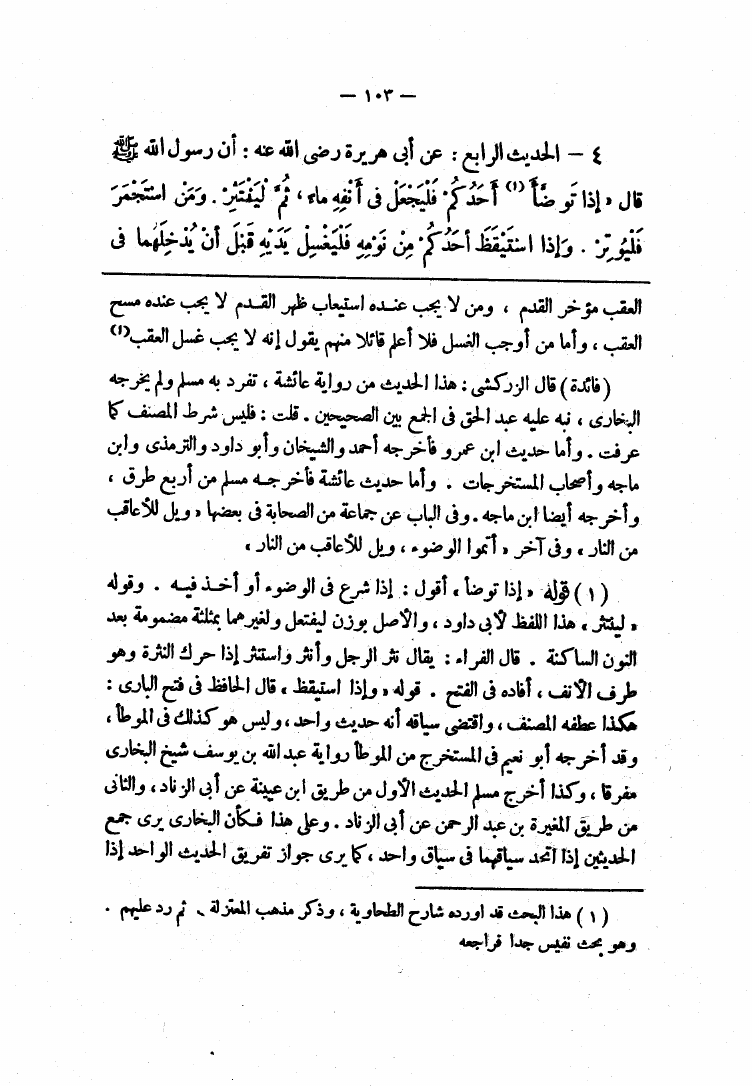 — ١٠٣ —
٤ – الحديث الرابع : عن أبى هريرة رضى الله عنه : أن رسول الله ﷺ
قال « إذا تَوَضَّأَ (١) أَحَدُكُمْ فَلْيَجْعَلْ فى أَنْفِهِ ماء ، ثُمَّ لْيَنْتَثِرْ . وَمَنْ اسْتَجْمَرَ
فَلْيُوتِرْ . وَإِذا اسْتَيْقَظَ أحَدُكُمْ مِنْ نَوْمِهِ فَلْيَغْسِلْ يَدَيْهِ قَبْلَ أَنْ يُدْخِلَهُما فى
العقب مؤخر القدم ، ومن لا يجب عنده استيعاب ظهر القدم لا يجب عنده مسح
العقب ، وأما من أوجب الغسل فلا أعلم قائلا منهم يقول إنه لا يجب غسل العقب (١)
( فائدة ) قال الزركشى : هذا الحديث من رواية عائشة ، تفرد به مسلم ولم يخرجه
البخارى ، نبه عليه عبد الحق فى الجمع بين الصحيحين . قلت : فليس شرط المصنف كما
عرفت . وأما حديث ابن عمرو فأخرجه أحمد والشيخان وأبو داود والترمذى وابن
ماجه وأصحاب المستخرجات . وأما حديث عائشة فأخرجه مسلم من أربع طرق ،
وأخرجه أيضا ابن ماجه . وفى الباب عن جماعة من الصحابة فى بعضها « ويل للأعاقب
من النار » وفى آخر « أتموا الوضوء ، ويل للأعاقب من النار »
( ١ ) قوله « إذا توضأ » أقول : إذا شرع فى الوضوء أو أخذ فيه . وقوله
« لينتثر » هذا اللفظ لأبى داود ، والأصل بوزن ليفتعل ولغيرهما بمثلثة مضمومة بعد
النون الساكنة . قال الفراء : يقال نثر الرجل وأنثر واستنثر إذا حرك النثرة وهو
طرف الأنف ، أفاده فى الفتح . قوله « وإذا استيقظ » قال الحافظ فى فتح البارى :
هكذا عطفه المصنف ، واقتضى سياقه أنه حديث واحد ، وليس هو كذلك فى الموطأ ،
وقد أخرجه أبو نعيم فى المستخرج من الموطأ رواية عبد الله بن يوسف شيخ البخارى
مفرقا ، وكذا أخرج مسلم الحديث الأول من طريق ابن عيينة عن أبى الزناد ، والثانى
من طريق المغيرة بن عبد الرحمن عن أبى الزناد . وعلى هذا فكأن البخارى يرى جمع
الحديثين إذا اتحد سياقهما فى سياق واحد ، كما يرى جواز تفريق الحديث الواحد إذا
( ١ ) هذا البحث قد اورده شارح الطحاوية ، وذكر مذهب المعتزلة ، ثم رد عليهم .
وهو بحث نفيس جدا فراجعه